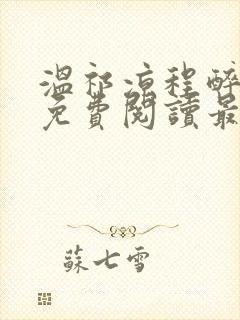 溫祁涼程醉
免費閱讀最
蘇七雪